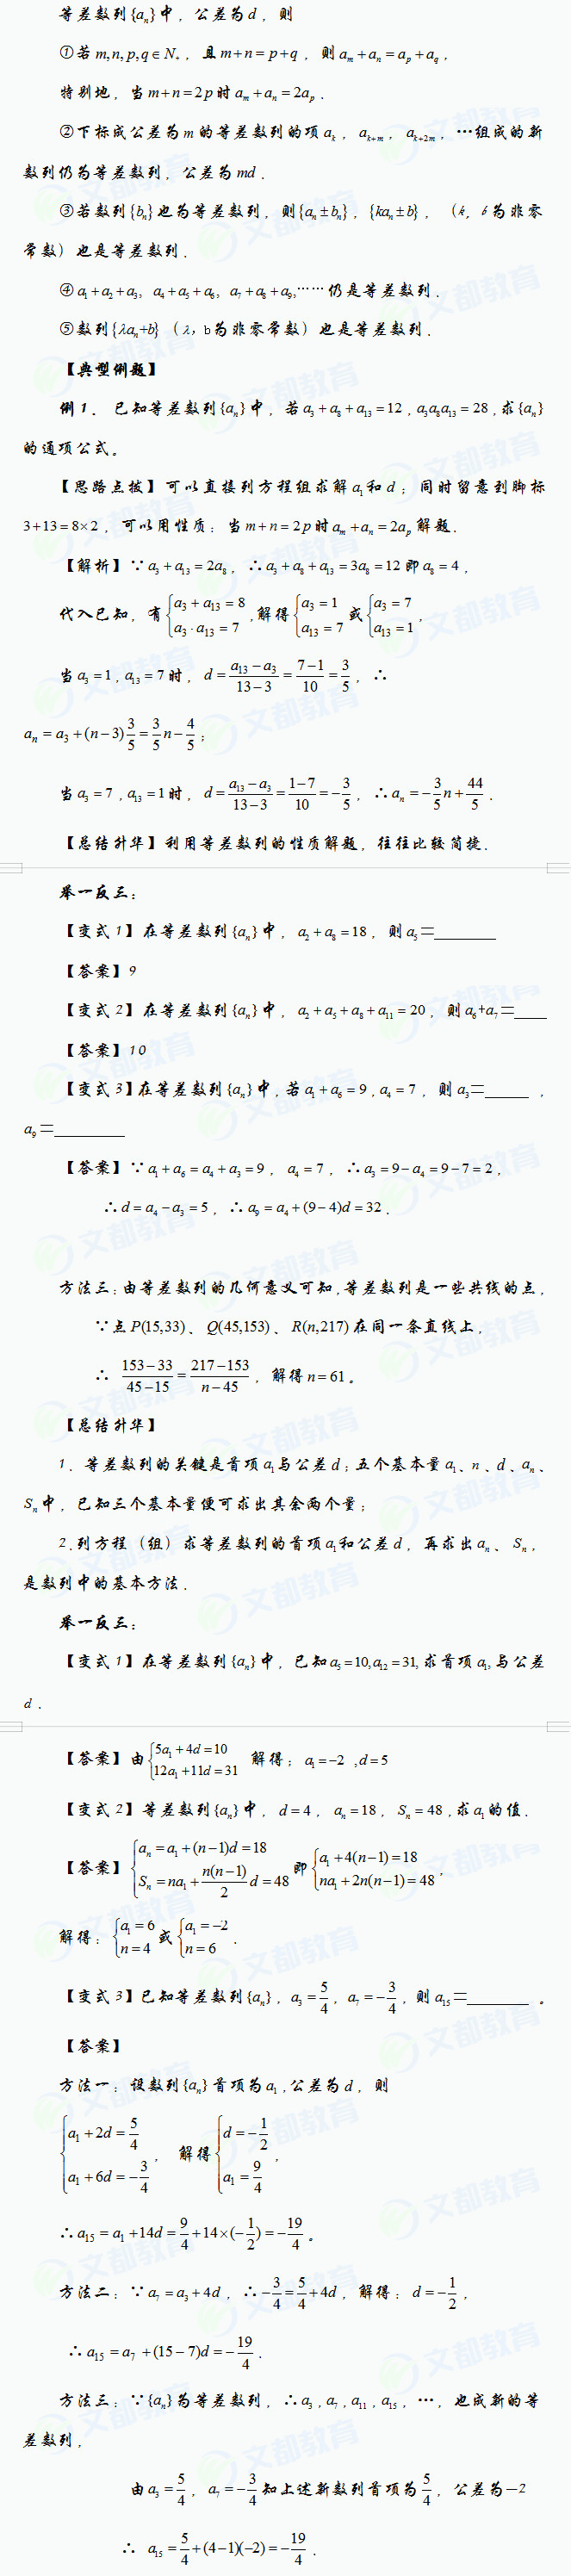 等差数列{aₙ}中，公差为d，则
①若m,n,p,q∈N₊，且m+n=p+q，则aₘ+aₙ=aₚ+a_q，
特别地，当m+n=2p时aₘ+aₙ=2aₚ．
②下标成公差为m的等差数列的项aₖ，aₖ₊ₘ，aₖ₊₂ₘ，…组成的新
数列仍为等差数列，公差为md．
③若数列{bₙ}也为等差数列，则{aₙ±bₙ}，{kaₙ±b}，（k，b为非零
常数）也是等差数列．
④a₁+a₂+a₃，a₄+a₅+a₆，a₇+a₈+a₉,……仍是等差数列．
⑤数列{λaₙ+b}（λ，b为非零常数）也是等差数列．
【典型例题】
例1．已知等差数列{aₙ}中，若a₃+a₈+a₁₃=12，a₃a₈a₁₃=28，求{aₙ}
的通项公式。
【思路点拨】可以直接列方程组求解a₁和d；同时留意到脚标
3+13=8×2，可以用性质：当m+n=2p时aₘ+aₙ=2aₚ解题．
【解析】∵a₃+a₁₃=2a₈，∴a₃+a₈+a₁₃=3a₈=12即a₈=4，
代入已知，有{a₃+a₁₃=8 a₃·a₁₃=7，解得{a₃=1 a₁₃=7或{a₃=7 a₁₃=1，
当a₃=1，a₁₃=7时，d=(a₁₃−a₃)/(13−3)=(7−1)/10=3/5，∴
aₙ=a₃+(n−3)3/5=3/5n−4/5；
当a₃=7，a₁₃=1时，d=(a₁₃−a₃)/(13−3)=(1−7)/10=−3/5，∴aₙ=−3/5n+44/5．
【总结升华】利用等差数列的性质解题，往往比较简捷．
举一反三：
【变式1】在等差数列{aₙ}中，a₂+a₈=18，则a₅=______
【答案】9
【变式2】在等差数列{aₙ}中，a₂+a₅+a₈+a₁₁=20，则a₆+a₇=____
【答案】10
【变式3】在等差数列{aₙ}中，若a₁+a₆=9，a₄=7，则a₃=_____，
a₉=________
【答案】∵a₁+a₆=a₄+a₃=9，a₄=7，∴a₃=9−a₄=9−7=2，
∴d=a₄−a₃=5，∴a₉=a₄+(9−4)d=32．
方法三：由等差数列的几何意义可知，等差数列是一些共线的点，
∵点P(15,33)、Q(45,153)、R(n,217)在同一条直线上，
∴(153−33)/(45−15)=(217−153)/(n−45)，解得n=61。
【总结升华】
1．等差数列的关键是首项a₁与公差d；五个基本量a₁、n、d、aₙ、
Sₙ中，已知三个基本量便可求出其余两个量；
2．列方程（组）求等差数列的首项a₁和公差d，再求出aₙ、Sₙ，
是数列中的基本方法．
举一反三：
【变式1】在等差数列{aₙ}中，已知a₅=10,a₁₂=31,求首项a₁,与公差
d．
【答案】由{5a₁+4d=10 12a₁+11d=31 解得；a₁=−2，d=5
【变式2】等差数列{aₙ}中，d=4，aₙ=18，Sₙ=48，求a₁的值．
【答案】{aₙ=a₁+(n−1)d=18 Sₙ=na₁+n(n−1)/2 d=48即{a₁+4(n−1)=18 na₁+2n(n−1)=48，
解得：{a₁=6 n=4或{a₁=−2 n=6．
【变式3】已知等差数列{aₙ}，a₃=5/4，a₇=−3/4，则a₁₅=_______。
【答案】
方法一：设数列{aₙ}首项为a₁，公差为d，则
{a₁+2d=5/4 a₁+6d=−3/4，解得{d=−1/2 a₁=9/4，
∴a₁₅=a₁+14d=9/4+14×(−1/2)=−19/4。
方法二：∵a₇=a₃+4d，∴−3/4=5/4+4d，解得；d=−1/2，
∴a₁₅=a₇+(15−7)d=−19/4．
方法三：∵{aₙ}为等差数列，∴a₃，a₇，a₁₁，a₁₅，…，也成新的等
差数列，
由a₃=5/4，a₇=−3/4知上述新数列首项为5/4，公差为−2
∴ a₁₅=5/4+(4−1)(−2)=−19/4．